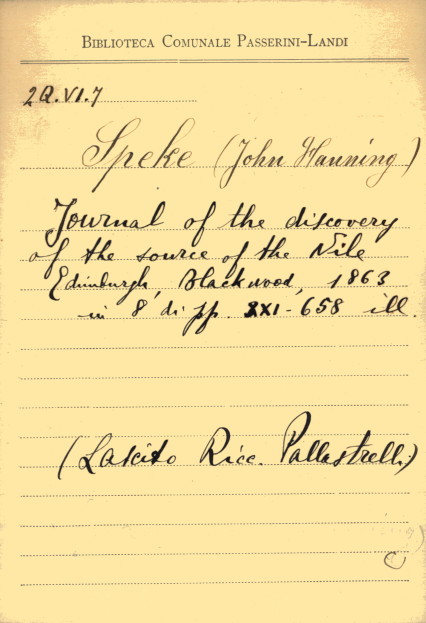 BIBLIOTECA COMUNALE PASSERINI-LANDI
2Q.VI.7
Speke (John Hanning)
Journal of the discovery
of the source of the Nile
Edinburgh, Blackwood, 1863
in 8° di pp. XXI-658 ill.
(Lascito Ricc. Pallastrelli)